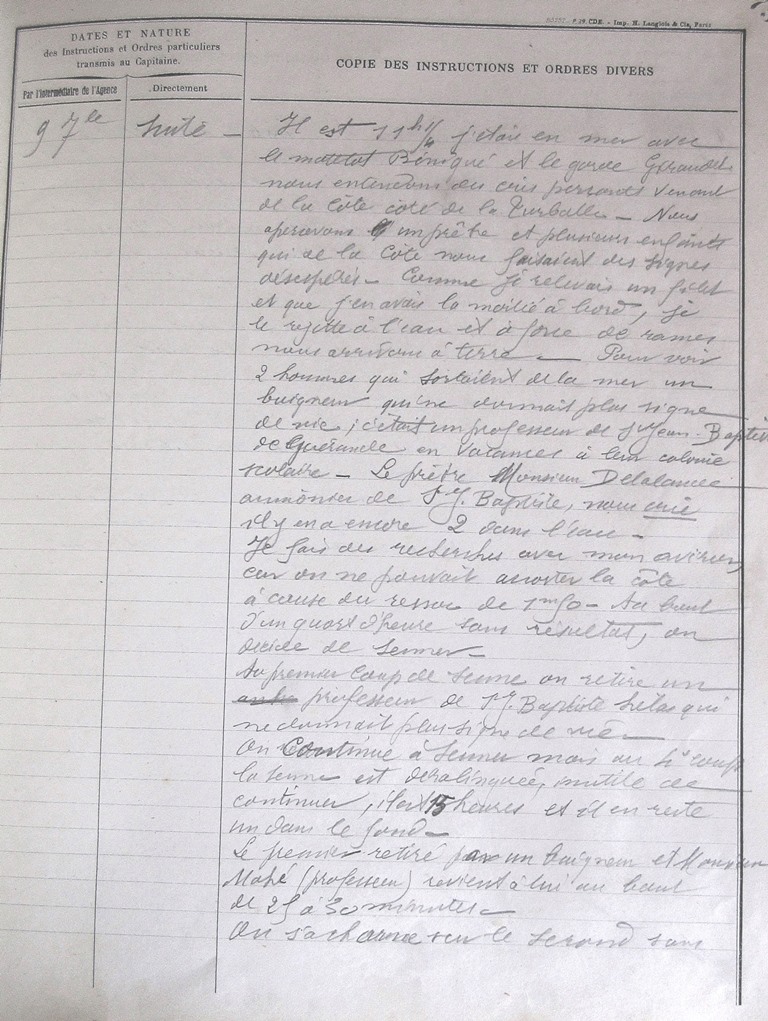 P. 29. CDE. - Imp. H. Langlois & Cie, Paris
DATES ET NATURE
des Instructions et Ordres particuliers
transmis au Capitaine.
COPIE DES INSTRUCTIONS ET ORDRES DIVERS
Par l'Intermédiaire de l'Agence
Directement
9 7bre
suite -
Il est 11h 1/4 j'étais en mer avec
le matelot Béniqué et le garde
nous entendons des cris perçants venant
de la Côte côté de la Turballe - Nous
apercevons un prêtre et plusieurs enfants
qui de la Côte nous faisaient des signes
désespérés - Comme je relevais un filet
et que j'en avais la moitié à bord, je
le rejette à l'eau et à force de rames
nous arrivons à terre - Pour voir
2 hommes qui sortaient de la mer un
baigneur qui ne donnait plus signe
de vie ; c'était un professeur de St Jean-Baptiste
de Guérande en vacances à leur colonie
scolaire - Le prêtre Monsieur Delalande
aumônier de St J. Baptiste, nous crie
il y en a encore 2 dans l'eau -
Je fais des recherches avec mon aviron,
car on ne pouvait accoster la côte
à cause du ressac de 1m50 - Au bout
d'un quart d'heure sans résultat, on
décide de senner -
Au premier coup de senne on retire un
professeur de St J. Baptiste hélas qui
ne donnait plus signe de vie -
On Continue à senner mais au 4e coup
la senne est déralinguée, inutile de
continuer, il est 15 heures et il en reste
un dans le fond -
Le premier retiré par un baigneur et Monsieur
Mahé (professeur) revient à lui au bout
de 25 à 30 minutes -
On s'acharne sur le second sans